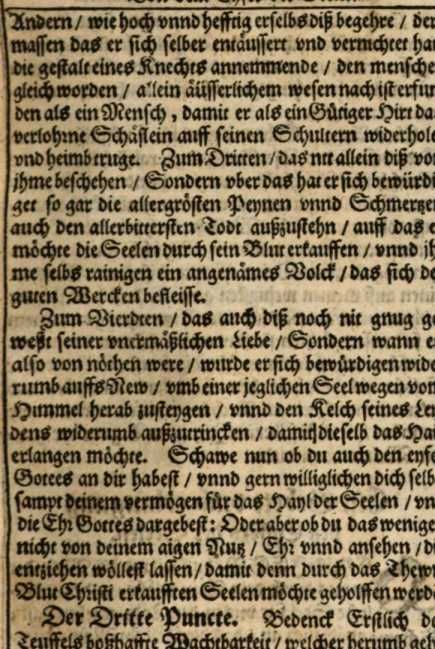 Andern / wie hoch vnnd hefftig er selbs diß begehre / der
massen das er sich selber entäussert vnd vernichtet ha
die gestalt eines Knechts annemmende / den mensche
gleich worden / allein äusserlichem wesen nach ist erfun
den als ein Mensch, damit er als ein Gütiger Hirt da
verlohrne Schäflein auff seinen Schultern widerhole
vnd heimb truge. Zum Dritten / das nit allein diß vo
jhme beschehen / Sondern vber das hat er sich bewürdi
get so gar die allergrösten Peynen vnnd Schmertze
auch den allerbittersten Todt außzustehn / auff das e
möchte die Seelen durch sein Blut erkauffen / vnnd jh
me selbs rainigen ein angenämes Volck / das sich de
guten Wercken befleisse.
Zum Vierdten / das auch diß noch nit gnug ge
weßt seiner vnermäßlichen Liebe / Sondern wann e
also von nöthen were / wurde er sich bewürdigen wide
rumb auffs New / vmb einer jeglichen Seel wegen von
Himmel herab zusteygen / vnnd den Kelch seines Ley
dens widerumb außzutrincken / damit dieselb das Hay
erlangen möchte. Schawe nun ob du auch den eyfe
Gottes an dir habest / vnnd gern williglichen dich selb
sampt deinem vermögen für das Hayl der Seelen / vn
die Ehr Gottes dargebest: Oder aber ob du das wenige
nicht von deinem aigen Nutz / Ehr vnnd ansehen / di
entziehen wöllest lassen / damit denn durch das Thewr
Blut Christi erkaufften Seelen möchte geholffen werde
Der Dritte Puncte. Bedenck Erstlich de
Teuffels boßhaffte Wachtbarkeit / welcher herumb geh